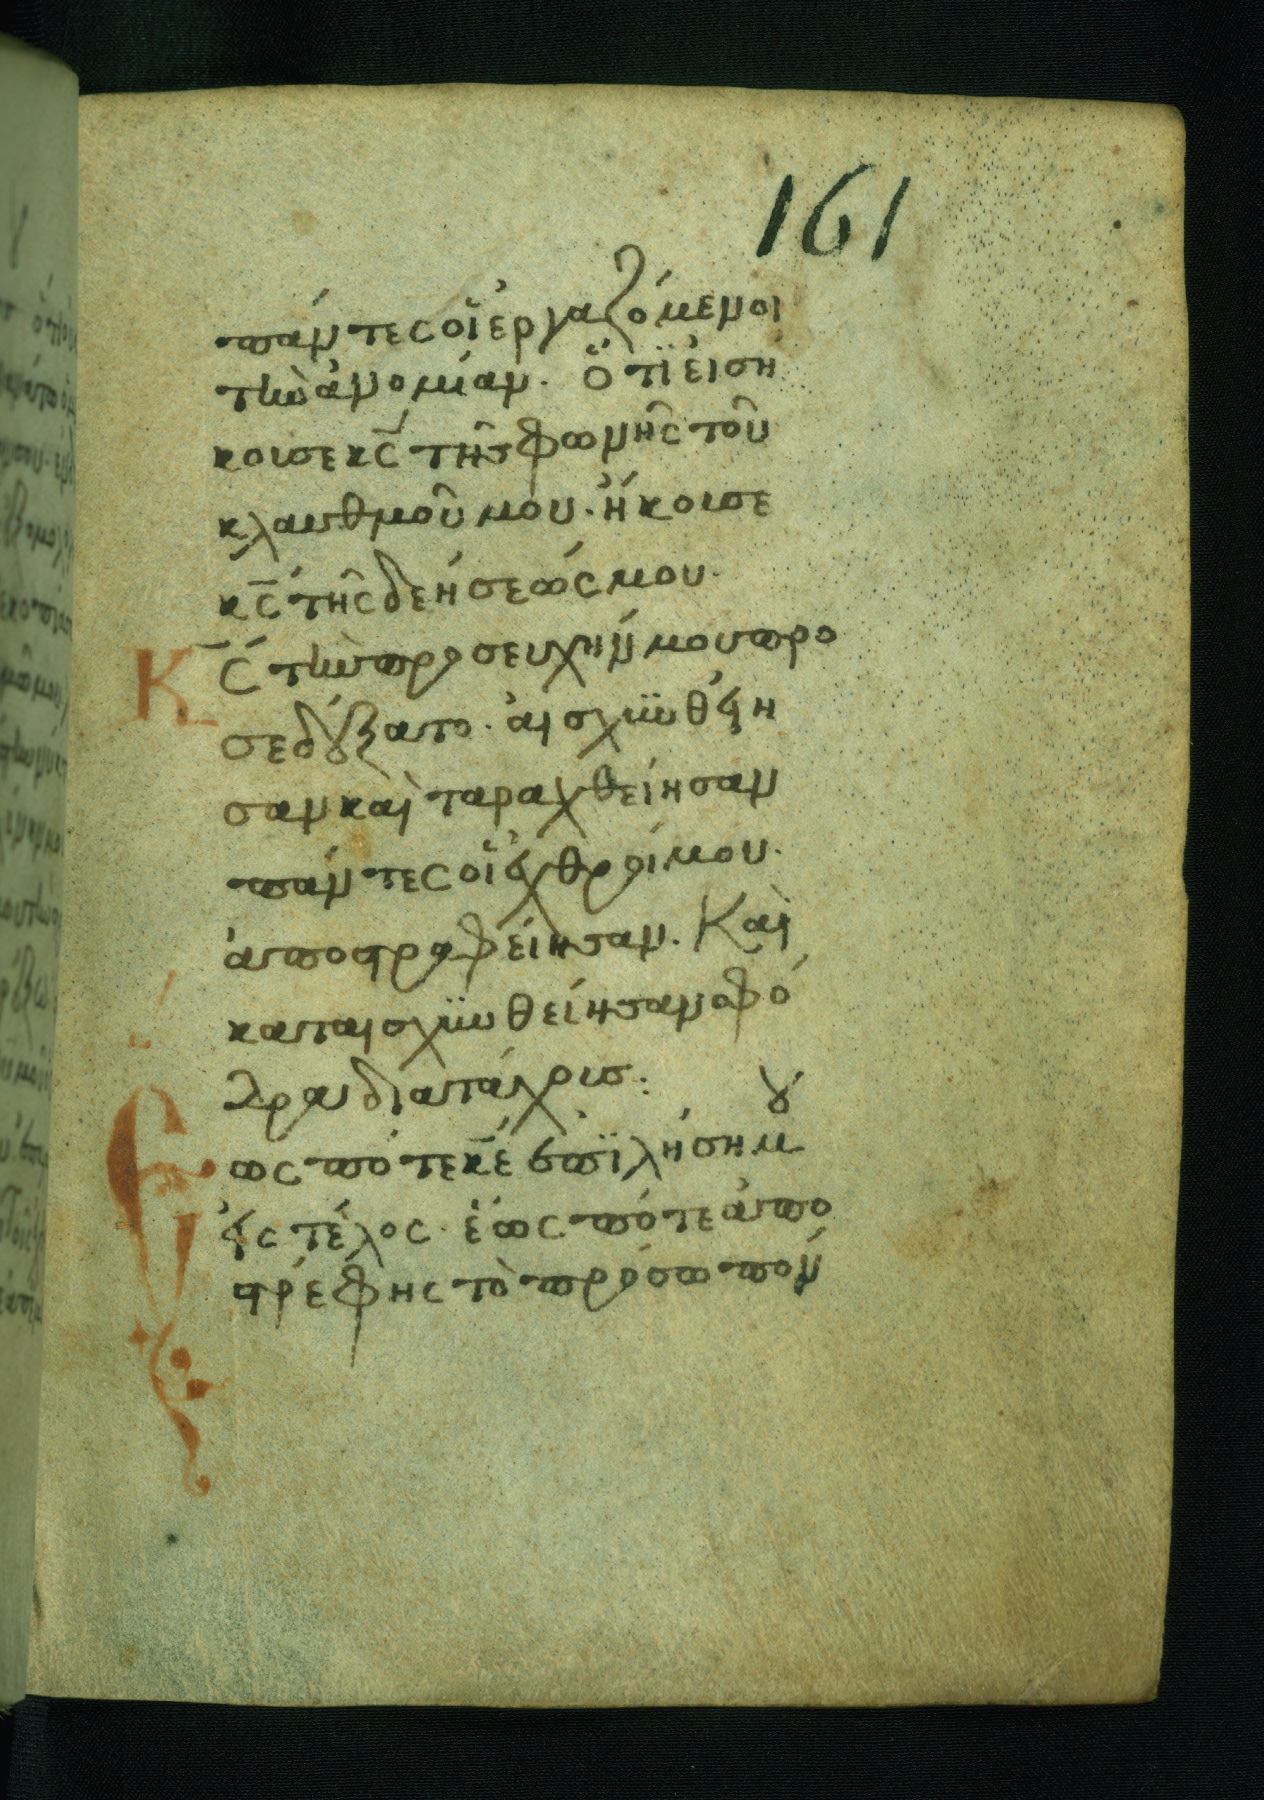 161
πάντες οἱ ἐργαζόμενοι
τὴν ἀνομίαν. Ὅτι εἰσή
κουσε κ̅ς τῆς φωνῆς τοῦ
κλαυθμοῦ μου. ἤκουσε
κ̅ς τῆς δεήσεώς μου.
Κ̅ς τὴν προσευχήν μου προ
σεδέξατο. αἰσχυνθείη
σαν καὶ ταραχθείησαν
πάντες οἱ ἐχθροί μου.
ἀποστραφείησαν. Καὶ
καταισχυνθείησαν σφό
δρα διὰ τάχους:
Ἕως πότε κ̅ε ἐπιλήσῃ μου
εἰς τέλος. ἕως πότε ἀπο
στρέφῃς τὸ πρόσωπόν